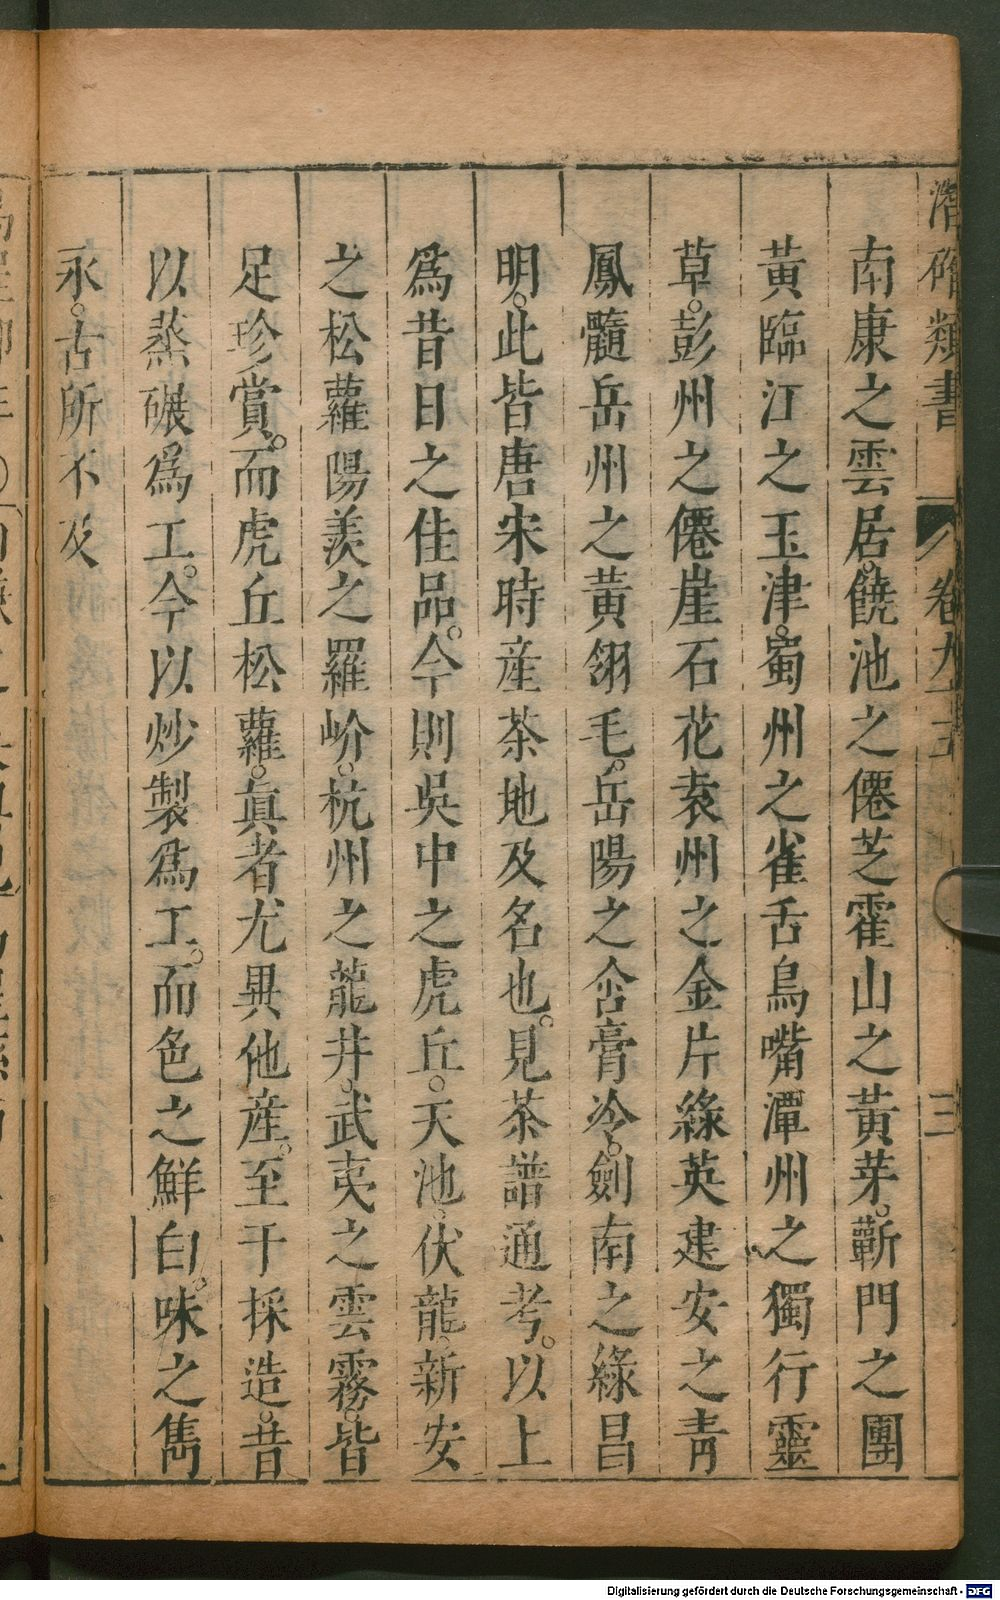 潛確類書 卷九十五 三
南康之雲居。饒池之僊芝霍山之黃芽。蘄門之團
黃臨江之玉津。蜀州之雀舌鳥嘴潭州之獨行靈
草。彭州之僊崖石花袁州之金片綠英建安之青
鳳髓岳州之黃翎毛。岳陽之含膏冷。劍南之綠昌
明。此皆唐宋時產茶地及名也。見茶譜通考。以上
爲昔日之佳品。今則吳中之虎丘。天池。伏龍。新安
之松蘿陽羨之羅岕。杭州之龍井。武夷之雲霧。皆
足珍賞。而虎丘松蘿。眞者尤異他產。至于採造。昔
以蒸碾爲工。今以炒製爲工。而色之鮮白。味之雋
永。古所不及
Digitalisierung gefördert durch die Deutsche Forschungsgemeinschaft - DFG